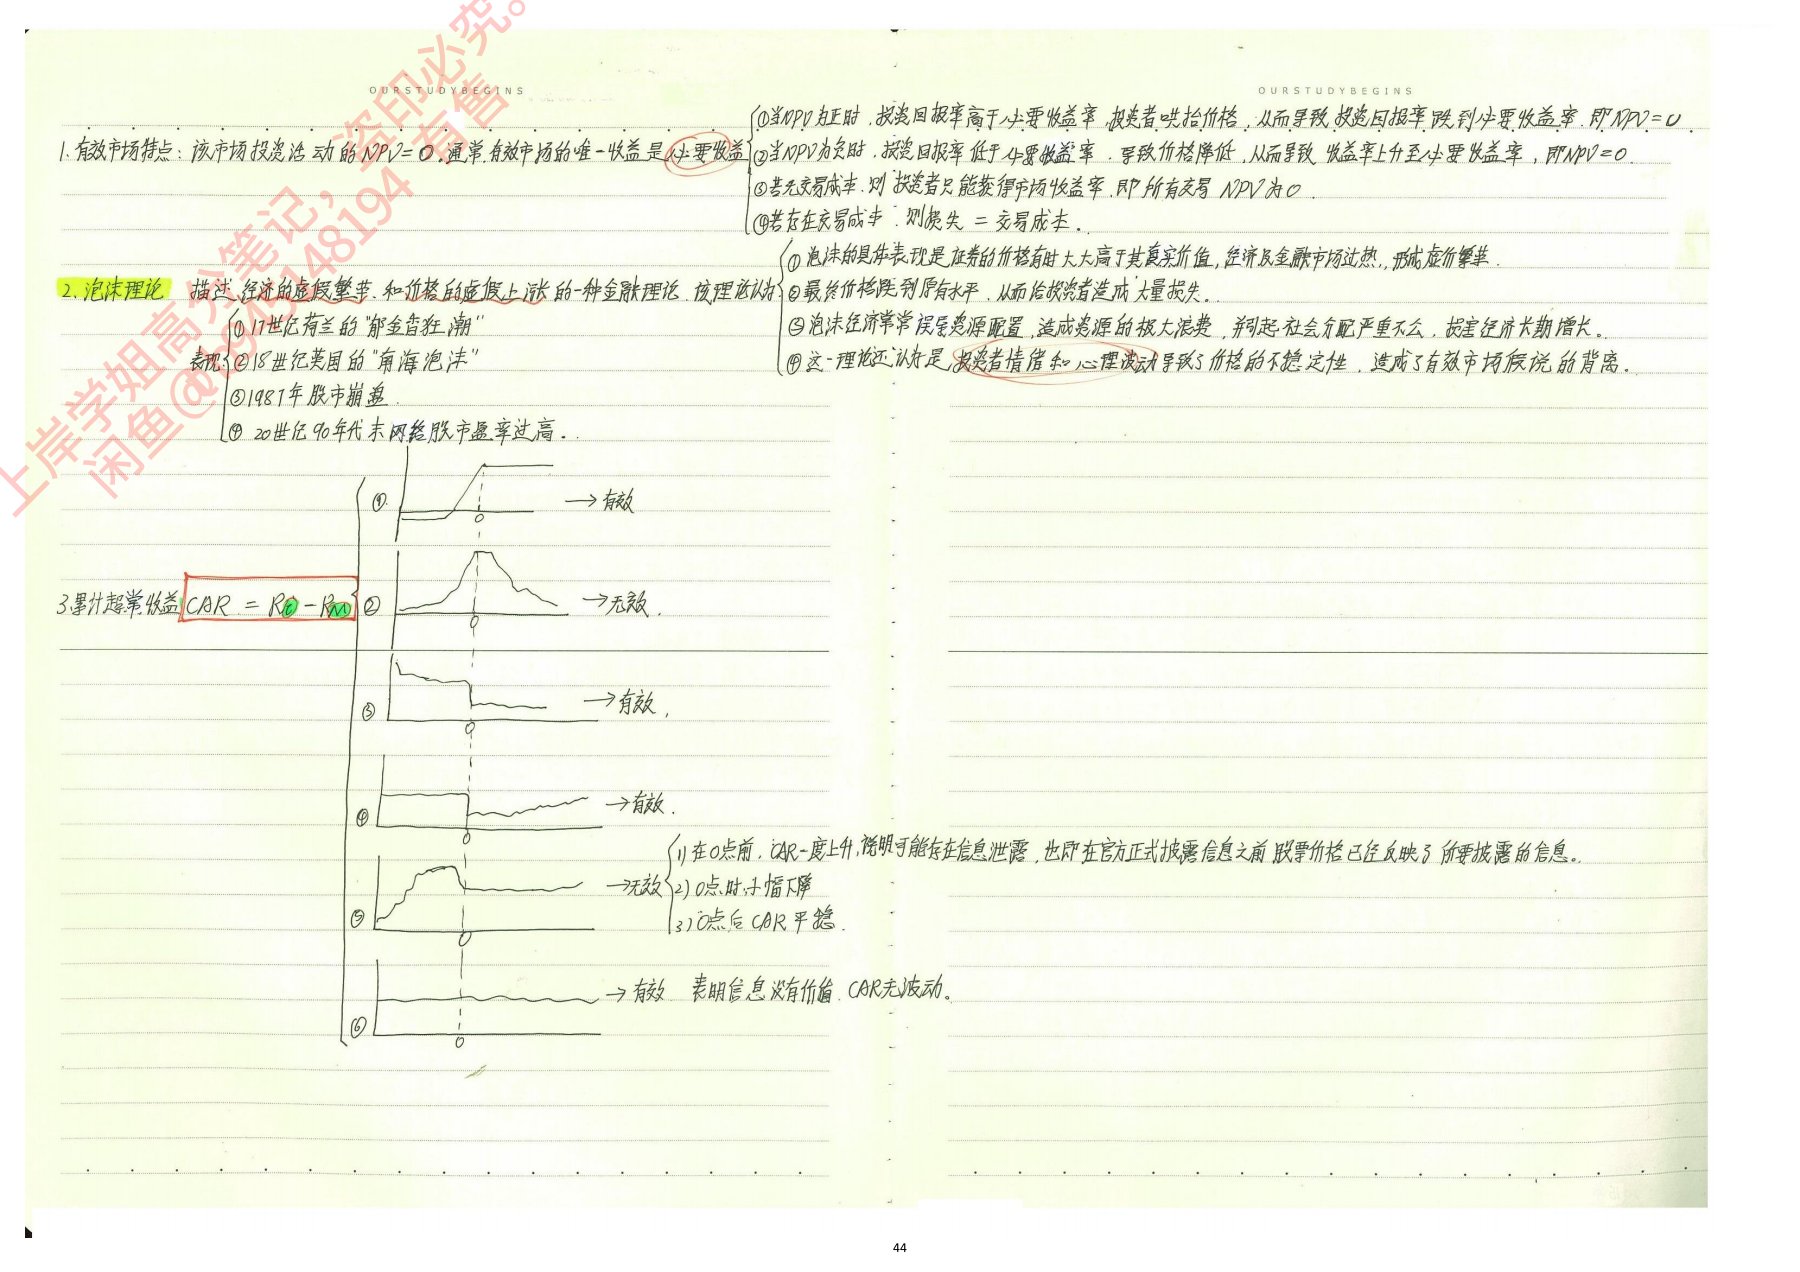 上岸学姐高分笔记，盗印必究。
闲鱼@tb945148194 有售
OURSTUDYBEGINS
OURSTUDYBEGINS
1.有效市场特点：该市场投资活动的NPV=0，通常有效市场的唯一收益是必要收益
①当NPV为正时，投资回报率高于必要收益率，投资者哄抬价格，从而导致投资回报率跌到必要收益率，即NPV=0
②当NPV为负时，投资回报率低于必要收益率，导致价格降低，从而导致收益率上升至必要收益率，即NPV=0.
③若无交易成本，则投资者只能获得市场收益率，即所有交易NPV为0.
④若存在交易成本，则损失=交易成本。
2.泡沫理论 描述经济的虚假繁荣和价格的虚假上涨的一种金融理论，该理论认为
①泡沫的具体表现是证券的价格有时大大高于其真实价值，经济及金融市场过热，形成虚价繁荣.
②最终价格跌到原有水平，从而给投资者造成大量损失。
③泡沫经济常常误导资源配置，造成资源的极大浪费，并引起社会分配严重不公，损害经济长期增长。
④这一理论还认为是投资者情绪和心理波动导致了价格的不稳定性，造成了有效市场假说的背离。
表现
①17世纪荷兰的"郁金香狂潮"
②18世纪英国的"南海泡沫"
③1987年股市崩盘.
④20世纪90年代末网络股市盈率过高.
3.累计超常收益 CAR = Ri - RM
① 0 →有效
② 0 →无效.
③ 0 →有效.
④ 0 →有效.
⑤ 0 →无效
1)在0点前，CAR一度上升，说明可能存在信息泄露，也即在官方正式披露信息之前股票价格已经反映了所要披露的信息。
2)0点时小幅下降
3)0点后CAR平稳.
⑥ 0 →有效 表明信息没有价值，CAR无波动。
44